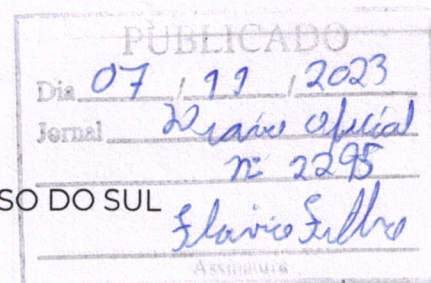 PUBLICADO
Dia 07 / 11 / 2023
Jornal Diario Oficial
nº 2295
SO DO SUL
Flavio Filho
Assinatura